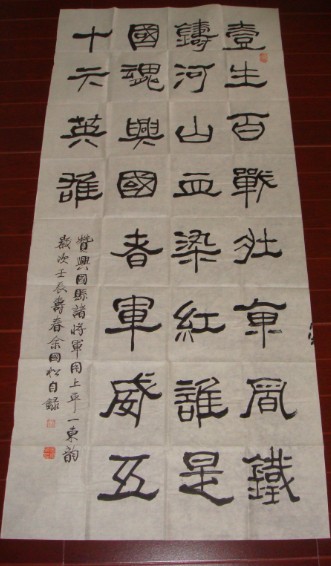 壹生百戰壯風鐵
鑄河山血染紅誰是
國魂興國者軍威五
十六英雄
贊興國縣諸將軍用上平一東韵
歲次壬辰春余国松自録